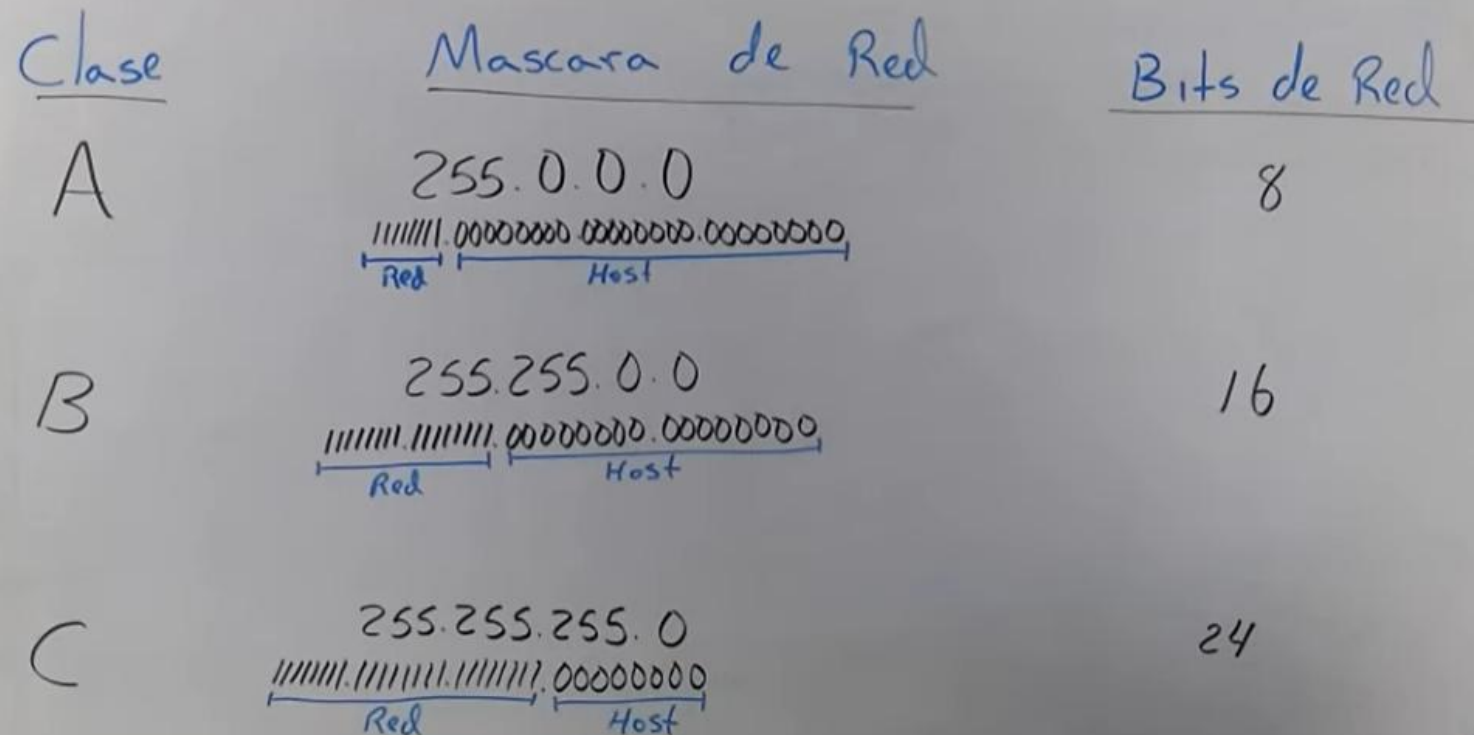 Clase Mascara de Red Bits de Red
A 255.0.0.0 8
11111111.00000000.00000000.00000000
Red Host
B 255.255.0.0 16
11111111.11111111.00000000.00000000
Red Host
C 255.255.255.0 24
11111111.11111111.11111111.00000000
Red Host